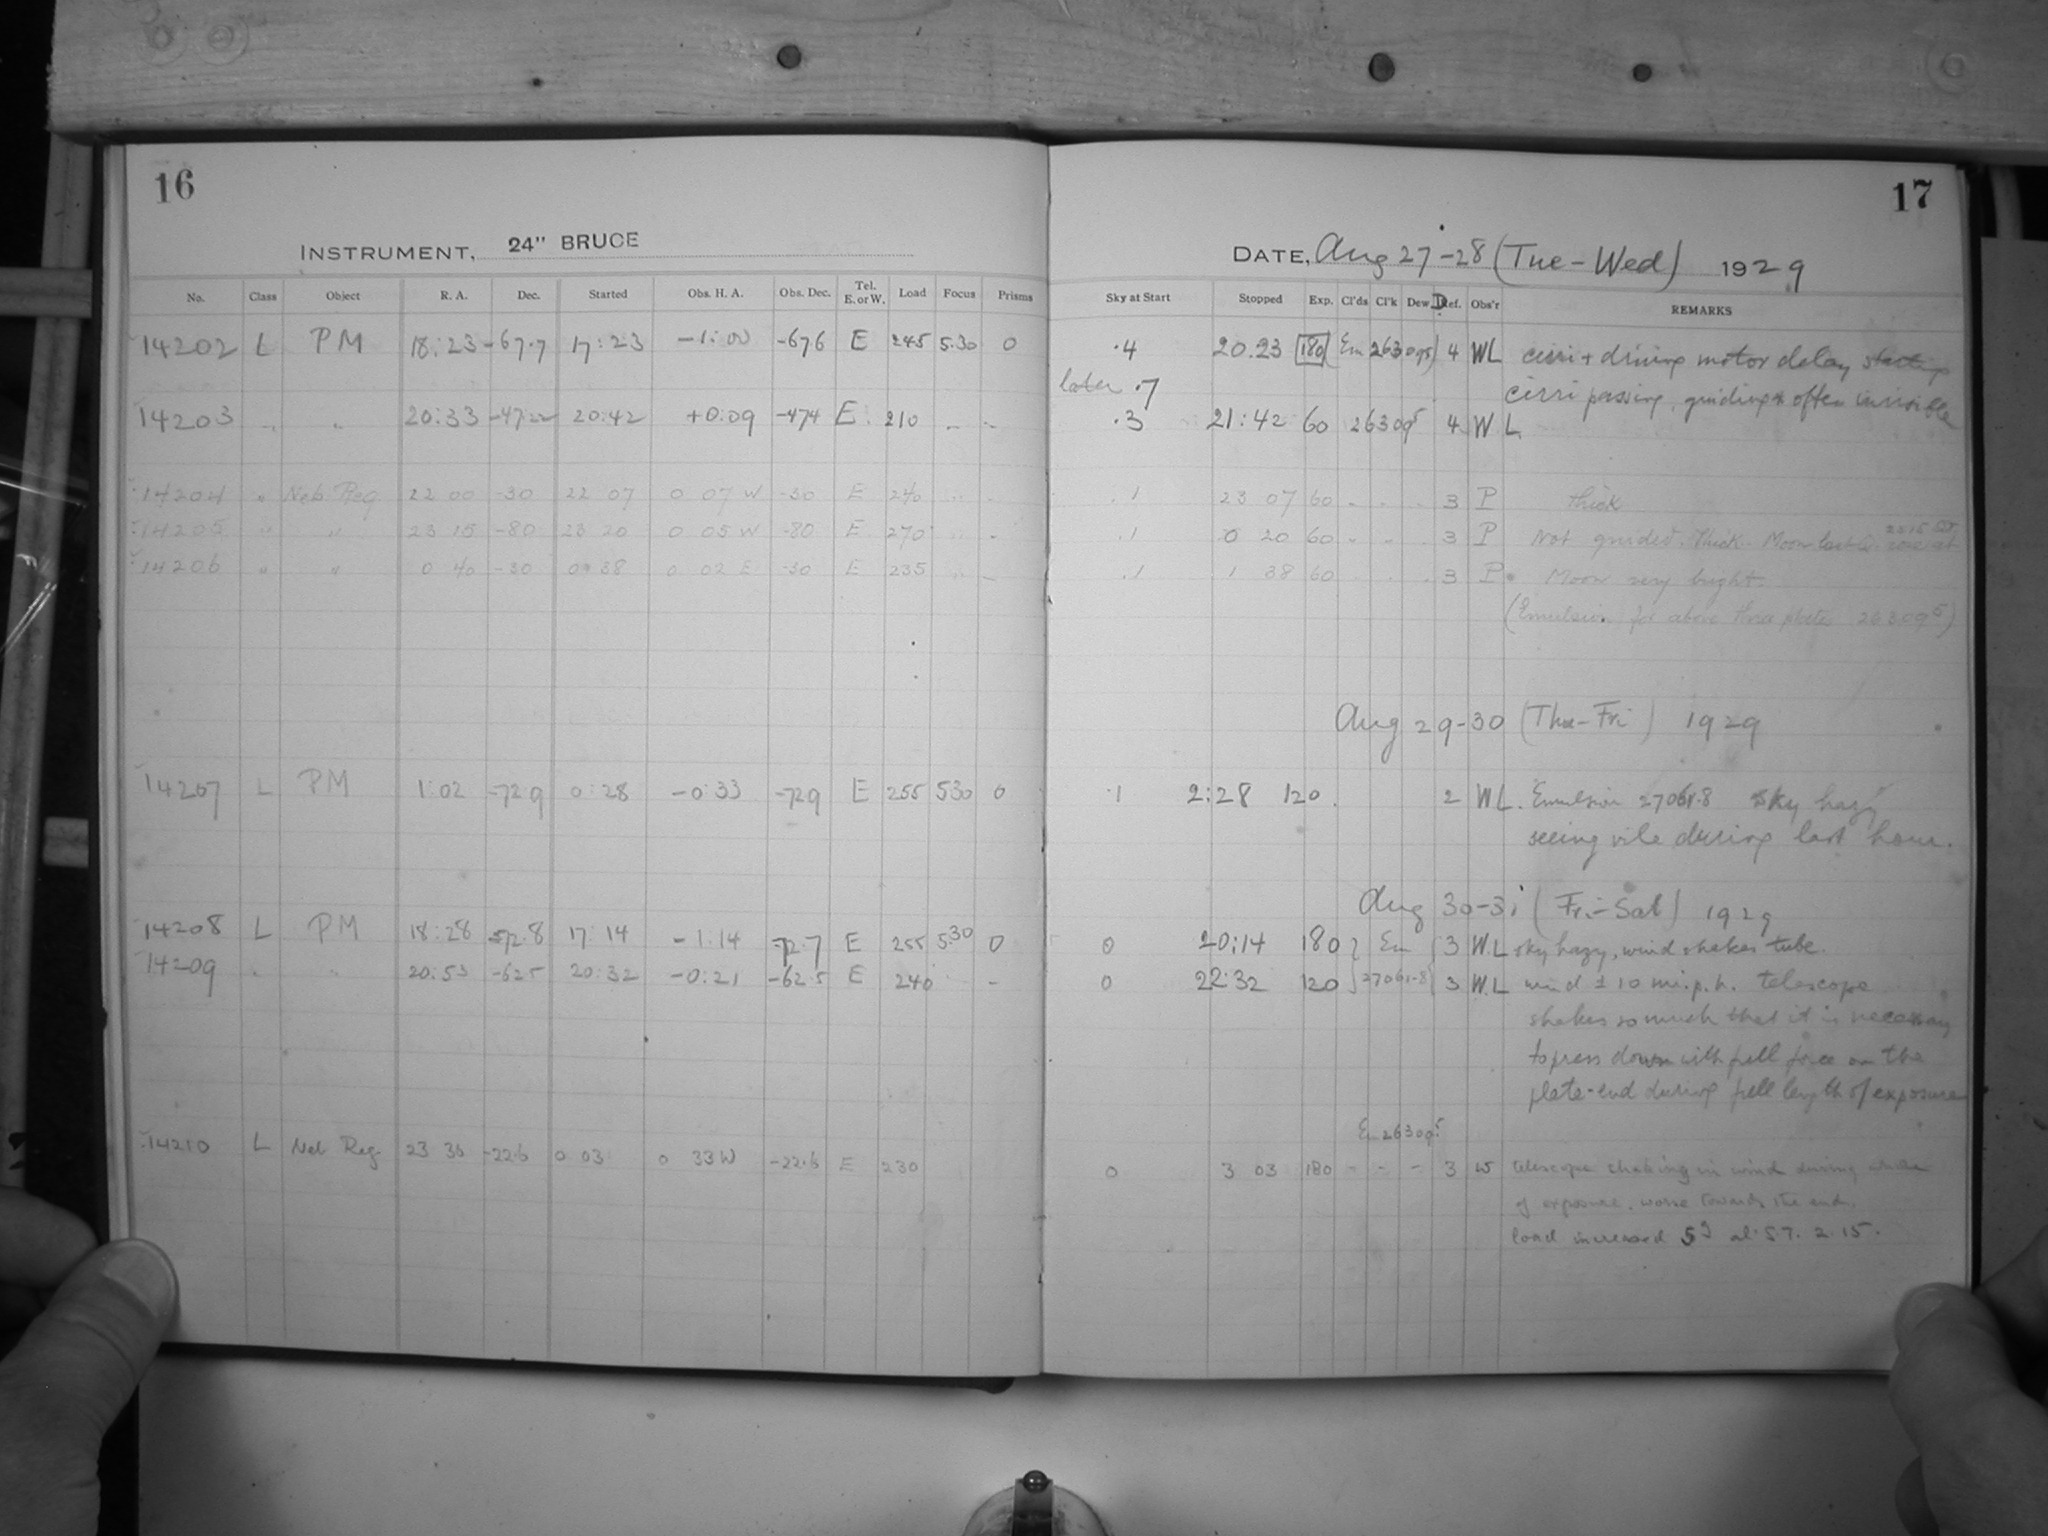 16
17
INSTRUMENT, 24" BRUCE
DATE, Aug 27-28 (Tue-Wed) 1929
No. Class Object R. A. Dec. Started Obs. H. A. Obs. Dec. Tel. E. or W. Load Focus Prisms Sky at Start Stopped Exp. Cl'ds Cl'k Dew Def. Obs'r REMARKS
14202 L PM 18:23 -67.7 17:23 -1:00 -67.6 E 245 5.30 0 .4 20.23 180 (Em 26309^5) 4 WL cirri + driving motor delay starting
later .7 cirri passing, guiding * often invisible
14203 " " 20:33 -47.22 20:42 +0:09 -47.4 E. 210 " " .3 21:42 60 26309^5 4 WL
14204 " Neb Reg 22 00 -30 22 07 0 07 W -30 E 240 " " .1 23 07 60 " " " 3 P Thick
14205 " " 23 15 -80 23 20 0 05 W -80 E 270 " " .1 0 20 60 " " " 3 P Not guided. Thick. Moon
14206 " " 0 40 -30 0 38 0 02 E -30 E 235 " " .1 1 38 60 " " " 3 P. Moon very bright.
(Emulsion for above three plates 26309^5)
Aug 29-30 (Thu-Fri) 1929
14207 L PM 1:02 -72.9 0:28 -0:33 -72.9 E 255 530 0 .1 2:28 120 2 WL. Emulsion 27061.8 Sky hazy
seeing vile during last hour.
Aug 30-31 (Fri-Sat) 1929
14208 L PM 18:28 -72.8 17:14 -1.14 -72.7 E 255 5.30 0 0 20:14 180 } Em { 3 W.L sky hazy, wind shakes tube.
14209 " " 20:53 -62.5 20:32 -0:21 -62.5 E 240 - 0 22:32 120 } 27061-8 { 3 W.L wind ± 10 mi.p.h. telescope
shakes so much that it is necessary
to press down with full force on the
plate-end during full length of exposure
Em 26309^5
14210 L Neb Reg. 23 30 -22.6 0 03 0 33 W -22.6 E 230 0 3 03 180 - - - 3 W telescope shaking in wind during whole
of exposure, worse towards the end.
load increased 5 at S.T. 2.15.